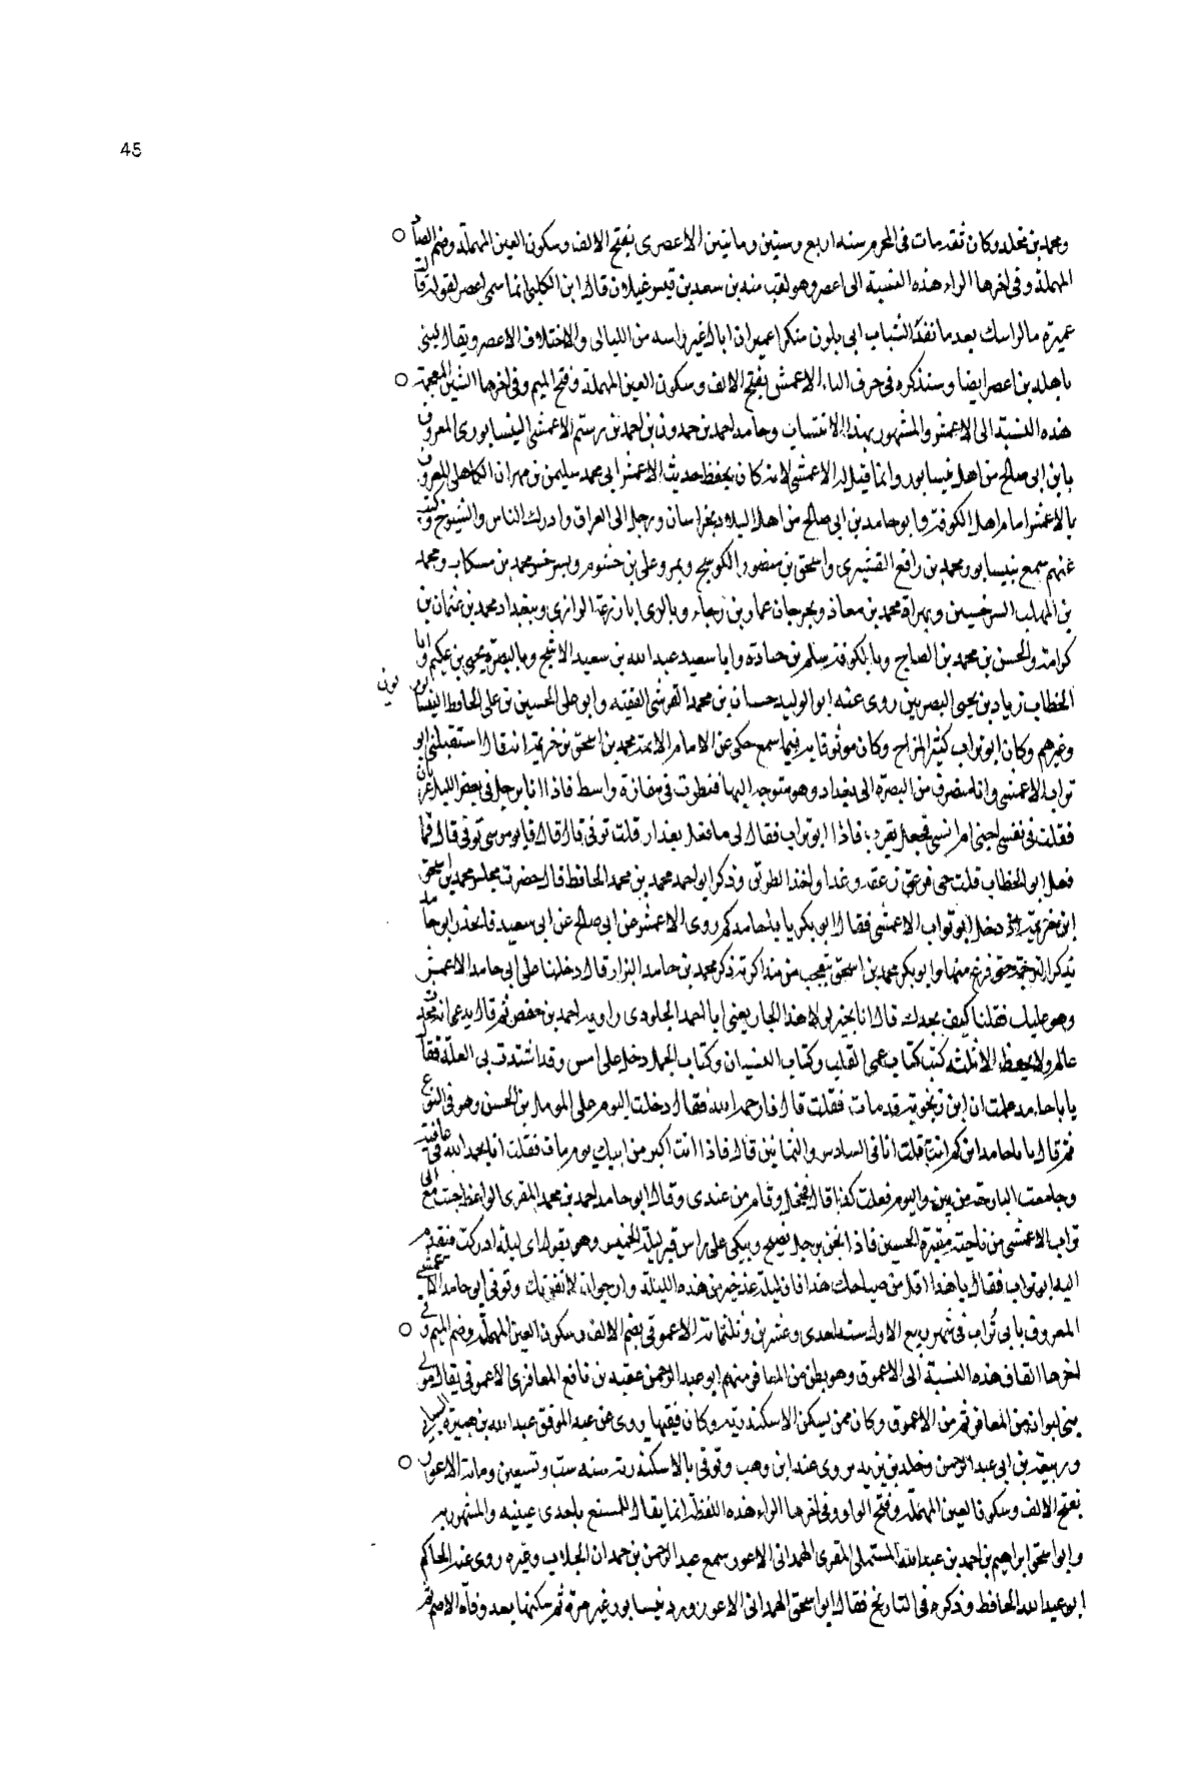 45
ومحمد بن مخلد وكان ثقة مات في المحرم سنة اربع وستين ومايتين الاعصرى بفتح الالف وسكون العين المهملة وضم الصاد
المهملة وفي اخرها الراء هذه النسبة الى اعصر وهو لقب منبه بن سعد بن قيس غيلان قال ابن الكلبي انما سمي اعصر لقوله قالت
عميرة ما لراسك بعد ما نفد الشباب اتى بلون منكر اعمير ان اباك غير راسه مر الليالى والاختلاف الاعصر ويقال لبني
باهلة بن اعصر ايضا وسنذكره في حرف الباء الاعمش بفتح الالف وسكون العين المهملة وفتح الميم وفي اخرها الشين المعجمة
هذه النسبة الى الاعمش والمشهور بهذا الانتساب وحامد احمد بن حمدون بن احمد بن رستم الاعمشي النيسابوري المعروف
بابن ابي صالح من اهل نيسابور وانما قيل له الاعمشي لانه كان يحفظ حديث الاعمش ابي محمد سليمن بن مهران الكاهلي المعروف
بالاعمش امام اهل الكوفة وابو حامد بن ابي صالح من اهل البلاد بخراسان ورحل الى العراق وادرك الناس والشيوخ وكتب
عنهم سمع بنيسابور محمد بن رافع القشيرى واسحق بن منصور الكوسج وبمرو على بن خشرم وبسرخس محمد بن مسكاب ومحمد
بن المهلب السرخسيين وبهراة محمد بن معاذ وبجرجان عمار بن رجاء وبالرى ابا زرعة الرازى وببغداد محمد بن عثمان بن
كرامة والحسن بن محمد بن الصباح وبالكوفة سلم بن جنادة وابا سعيد عبد الله بن سعيد الاشج وبالبصرة يحيى بن حكيم وابا
الخطاب زياد بن يحيى البصريين روى عنه ابو الوليد حسان بن محمد القرشي الفقيه وابو على الحسين بن على الحافظ النيسابوريون
وغيرهم وكان ابو تراب كثير المزاح وكان موثوقا به فيما سمع حكى عن الامام الائمة محمد بن اسحق بن خزيمة انه قال استقبلني ابو
تراب الاعمشي وانا منصرف من البصرة الى بغداد وهو متوجه اليها فنظرت في مفازة واسط فاذا انا برجل في بعض الليل عريان
فقلت في نفسي اجني ام انسي فجعل يقرب فاذا ابو تراب فقال لي ما فعل بندار قلت توفي قال قال فابو موسى توفي قال فما
فعل ابو الخطاب قلت حى فزعق زعقة وغدا واخذ الطريق وذكر ابو احمد محمد بن محمد الحافظ قال حضرت مجلس محمد بن اسحق
ابن خزيمة اذ دخل ابو تراب الاعمشي فقال ابو بكر يا باحامد كم روى الاعمش عن ابي صالح عن ابي سعيد فاخذ ابو حامد
يذكر الترجمة حتى فرغ منها وابو بكر محمد بن اسحق يتعجب من مذاكرته ذكر محمد بن حامد البزار قال دخلنا على ابي حامد الاعمشي
وهو عليل فقلنا كيف تجدك قال انا بخير لولا هذا الجار يعني ابا احمد الجلودى راوية احمد بن حفص ثم قال يدعي انه محدث
عالم ولا يحفظ الا ثلثة كتب كتاب عمى القلب وكتاب النسيان وكتاب الجهل دخل على امس وقد اشتدت بى العلة فقال
يا باحامد علمت ان ابن زنجوية قد مات فقلت قال فارحمه الله فقال دخلت اليوم على المومل بن الحسن وهو في النزع
ثم قال يا باحامد ابن كم انت قلت انا في السادس والثمانين قال فاذا انت اكبر من ابيك يوم مات فقلت انا بحمد الله في عافية
وجامعت البارحة مرتين واليوم فعلت كذا قال فخجل وقام من عندى وقال ابو حامد احمد بن محمد المقرى الواعظ جئت مع ابي
تراب الاعمشي من ناحية مقبرة الحسين فاذا نحن برجل يصيح ويبكي على راس قبر ليلة الخميس وهو يقول اى ليلة ادركت فتقدم
اليه ابو تراب فقال يا هذا اقل من صياحك هذا فان ليلة غد خير من هذه الليلة وارجو انه لا تفوتك وتوفي ابو حامد الاعمشي
المعروف بابي تراب في شهر ربيع الاول سنة احدى وعشرين وثلثمائة الاعموقى بضم الالف وسكون العين المهملة وضم الميم وفي
اخرها القاف هذه النسبة الى الاعموق وهو بطن من المعافر منهم ابو عبد الرحمن عقبة بن نافع المعافرى الاعموقي يقال مولى
بني ليوان من المعافر ثم من الاعموق وكان ممن يسكن الاسكندرية وكان فقيها روى عن عبد الموفق عبد الله بن هبيرة السبائي
وربيعة بن ابي عبد الرحمن وخلد بن يزيد روى عنه ابن وهب وتوفي بالاسكندرية سنة ست وتسعين ومائة الاعور
بفتح الالف وسكون العين المهملة وفتح الواو وفي اخرها الراء هذه اللفظة انما يقال للممتنع باحدى عينيه والمشهور به
وابو اسحق ابراهيم بن احمد بن عبدالله المستملى المقرى الهمداني الاعور سمع عبد الرحمن بن حمدان الجلاب وغيره روى عنه الحاكم
ابو عبد الله الحافظ وذكره في التاريخ فقال ابو اسحق الهمداني الاعور ورد نيسابور غير مرة ثم سكنها بعد وفاة الاصم ثم